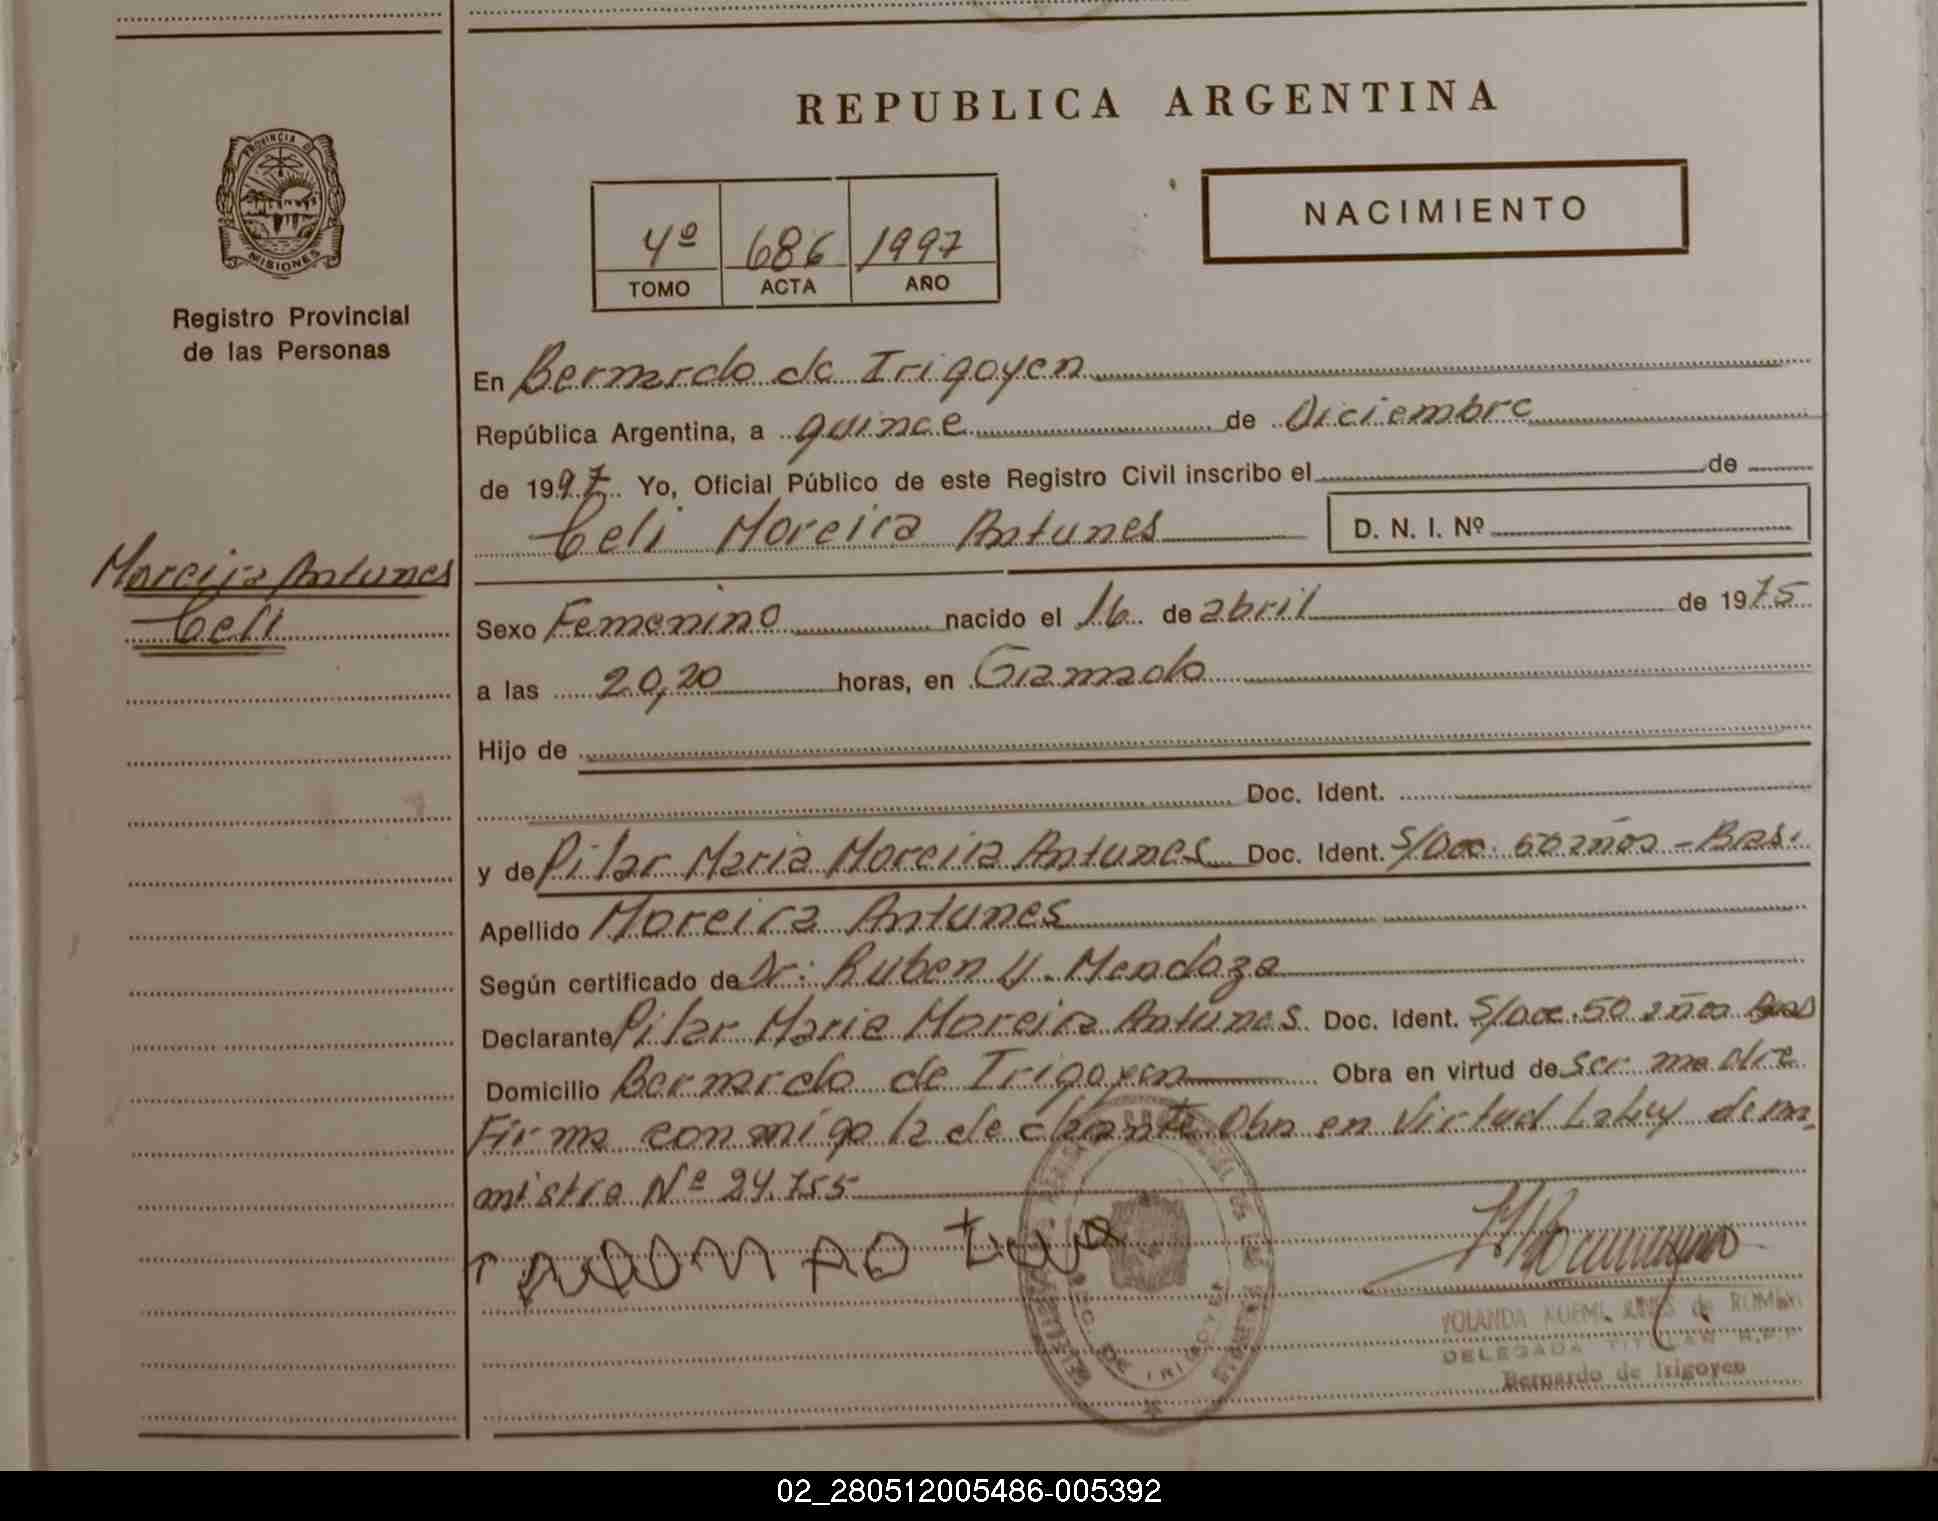 REPUBLICA ARGENTINA
PROVINCIA DE
MISIONES
Registro Provincial
de las Personas
NACIMIENTO
4º 686 1997
TOMO ACTA AÑO
En Bernardo de Irigoyen
República Argentina, a quince de Diciembre
de 1997. Yo, Oficial Público de este Registro Civil inscribo el de
Celi Moreira Antunes D. N. I. Nº
Moreira Antunes
Celi
Sexo Femenino nacido el 16 de abril de 1975
a las 20,20 horas, en Gramado
Hijo de
Doc. Ident.
y de Pilar Maria Moreira Antunes Doc. Ident. S/Doc. 50 años - Bras.
Apellido Moreira Antunes
Según certificado de Dr: Ruben U. Mendoza
Declarante Pilar Maria Moreira Antunes Doc. Ident. S/Doc. 50 años Bras
Domicilio Bernardo de Irigoyen Obra en virtud de ser madre
Firma conmigo la declarante Obra en Virtud La Ley de mi
nistro Nº 24.755
YOLANDA NOEMI de ROMAN
DELEGADA TITULAR R.P.P.
Bernardo de Irigoyen
02_280512005486-005392